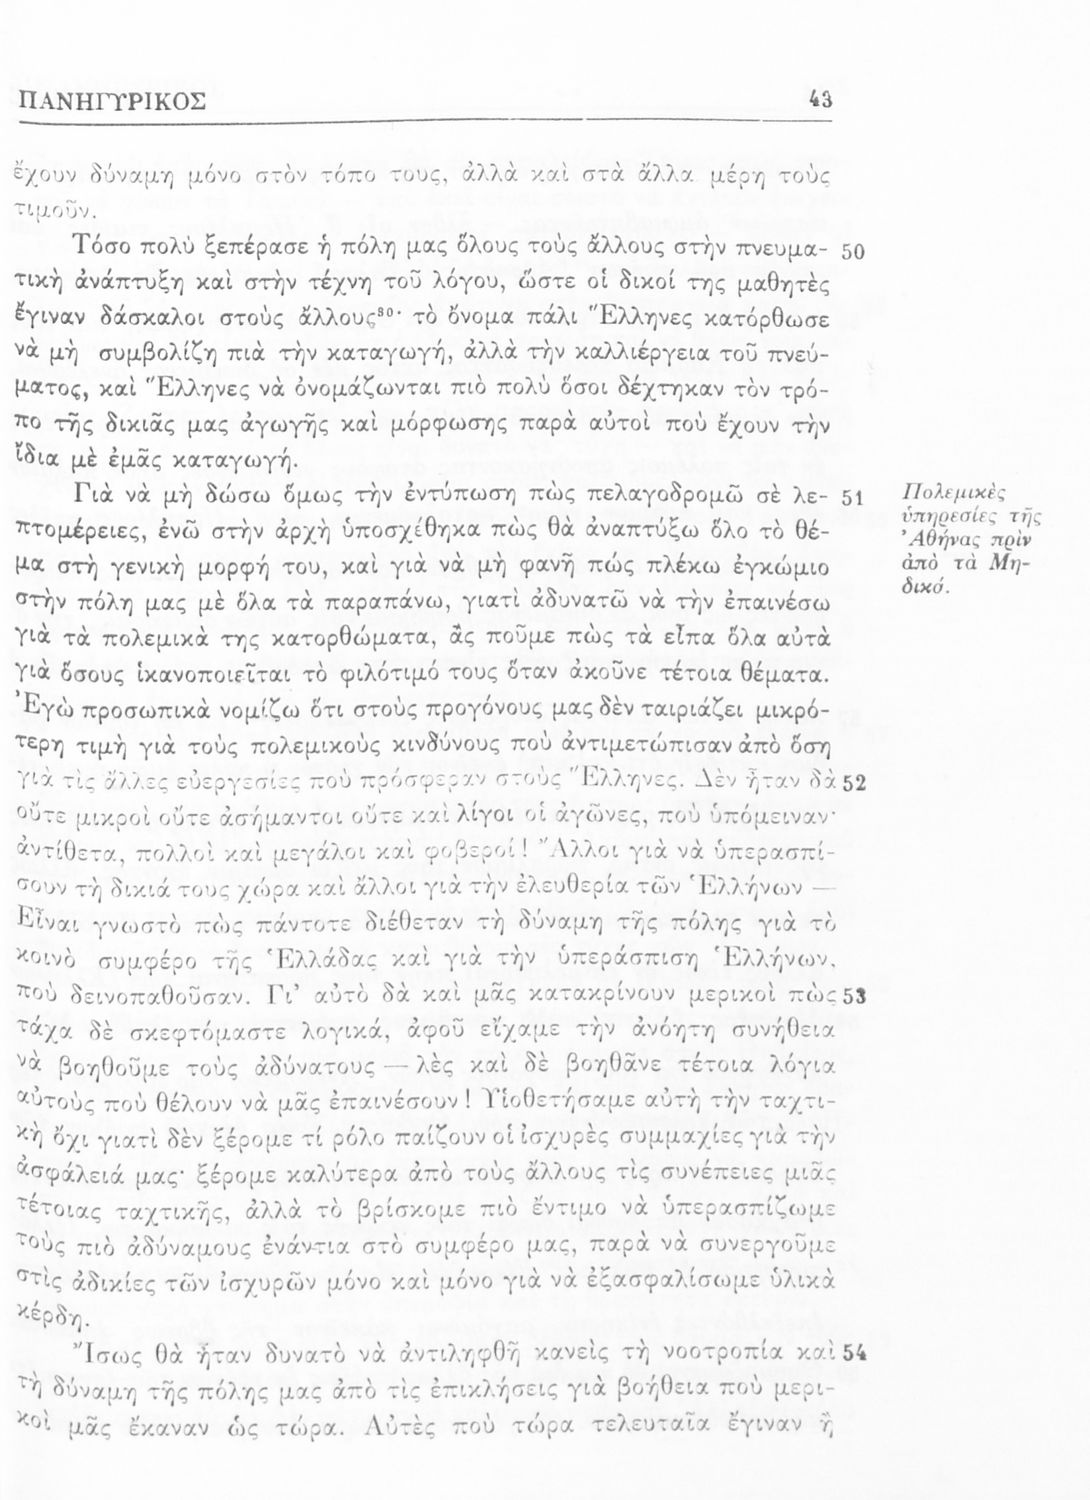 ΠΑΝΗΓΥΡΙΚΟΣ 43
ἔχουν δύναμη μόνο στὸν τόπο τους, ἀλλὰ καὶ στὰ ἄλλα μέρη τοὺς
τιμοῦν.
Τόσο πολὺ ξεπέρασε ἡ πόλη μας ὅλους τοὺς ἄλλους στὴν πνευμα- 50
τικὴ ἀνάπτυξη καὶ στὴν τέχνη τοῦ λόγου, ὥστε οἱ δικοί της μαθητὲς
ἔγιναν δάσκαλοι στοὺς ἄλλους³⁰· τὸ ὄνομα πάλι Ἕλληνες κατόρθωσε
νὰ μὴ συμβολίζη πιὰ τὴν καταγωγή, ἀλλὰ τὴν καλλιέργεια τοῦ πνεύ-
ματος, καὶ Ἕλληνες νὰ ὀνομάζωνται πιὸ πολὺ ὅσοι δέχτηκαν τὸν τρό-
πο τῆς δικιᾶς μας ἀγωγῆς καὶ μόρφωσης παρὰ αὐτοὶ ποὺ ἔχουν τὴν
ἴδια μὲ ἐμᾶς καταγωγή.
Γιὰ νὰ μὴ δώσω ὅμως τὴν ἐντύπωση πὼς πελαγοδρομῶ σὲ λε- 51
πτομέρειες, ἐνῶ στὴν ἀρχὴ ὑποσχέθηκα πὼς θὰ ἀναπτύξω ὅλο τὸ θέ-
μα στὴ γενικὴ μορφή του, καὶ γιὰ νὰ μὴ φανῆ πώς πλέκω ἐγκώμιο
στὴν πόλη μας μὲ ὅλα τὰ παραπάνω, γιατὶ ἀδυνατῶ νὰ τὴν ἐπαινέσω
γιὰ τὰ πολεμικὰ της κατορθώματα, ἂς ποῦμε πὼς τὰ εἶπα ὅλα αὐτὰ
γιὰ ὅσους ἱκανοποιεῖται τὸ φιλότιμό τους ὅταν ἀκοῦνε τέτοια θέματα.
Ἐγὼ προσωπικὰ νομίζω ὅτι στοὺς προγόνους μας δὲν ταιριάζει μικρό-
τερη τιμὴ γιὰ τοὺς πολεμικοὺς κινδύνους ποὺ ἀντιμετώπισαν ἀπὸ ὅση
γιὰ τὶς ἄλλες εὐεργεσίες ποὺ πρόσφεραν στοὺς Ἕλληνες. Δὲν ἦταν δὰ 52
οὔτε μικροὶ οὔτε ἀσήμαντοι οὔτε καὶ λίγοι οἱ ἀγῶνες, ποὺ ὑπόμειναν·
ἀντίθετα, πολλοὶ καὶ μεγάλοι καὶ φοβεροί! Ἄλλοι γιὰ νὰ ὑπερασπί-
σουν τὴ δικιά τους χώρα καὶ ἄλλοι γιὰ τὴν ἐλευθερία τῶν Ἑλλήνων —
Εἶναι γνωστὸ πὼς πάντοτε διέθεταν τὴ δύναμη τῆς πόλης γιὰ τὸ
κοινὸ συμφέρο τῆς Ἑλλάδας καὶ γιὰ τὴν ὑπεράσπιση Ἑλλήνων,
ποὺ δεινοπαθοῦσαν. Γι' αὐτὸ δὰ καὶ μᾶς κατακρίνουν μερικοὶ πὼς 53
τάχα δὲ σκεφτόμαστε λογικά, ἀφοῦ εἴχαμε τὴν ἀνόητη συνήθεια
νὰ βοηθοῦμε τοὺς ἀδύνατους — λὲς καὶ δὲ βοηθᾶνε τέτοια λόγια
αὐτοὺς ποὺ θέλουν νὰ μᾶς ἐπαινέσουν! Υἱοθετήσαμε αὐτὴ τὴν ταχτι-
κὴ ὄχι γιατὶ δὲν ξέρομε τί ρόλο παίζουν οἱ ἰσχυρὲς συμμαχίες γιὰ τὴν
ἀσφάλειά μας· ξέρομε καλύτερα ἀπὸ τοὺς ἄλλους τὶς συνέπειες μιᾶς
τέτοιας ταχτικῆς, ἀλλὰ τὸ βρίσκομε πιὸ ἔντιμο νὰ ὑπερασπίζωμε
τοὺς πιὸ ἀδύναμους ἐνάντια στὸ συμφέρο μας, παρὰ νὰ συνεργοῦμε
στὶς ἀδικίες τῶν ἰσχυρῶν μόνο καὶ μόνο γιὰ νὰ ἐξασφαλίσωμε ὑλικὰ
κέρδη.
Ἴσως θὰ ἦταν δυνατὸ νὰ ἀντιληφθῆ κανεὶς τὴ νοοτροπία καὶ 54
τὴ δύναμη τῆς πόλης μας ἀπὸ τὶς ἐπικλήσεις γιὰ βοήθεια ποὺ μερι-
κοὶ μᾶς ἔκαναν ὡς τώρα. Αὐτὲς ποὺ τώρα τελευταῖα ἔγιναν ἢ
Πολεμικὲς
ὑπηρεσίες τῆς
Ἀθήνας πρὶν
ἀπὸ τὰ Μη-
δικά.